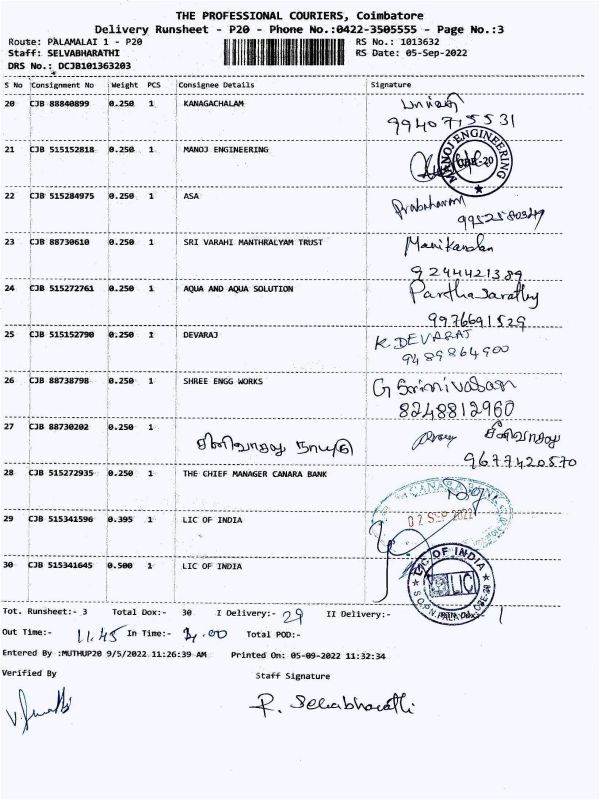 THE PROFESSIONAL COURIERS, Coimbatore
Delivery Runsheet - P20 - Phone No.:0422-3505555 - Page No.:3
Route: PALAMALAI 1 - P20 RS No.: 1013632
Staff: SELVABHARATHI RS Date: 05-Sep-2022
DRS No.: DCJB101363203
S No Consignment No Weight PCS Consignee Details Signature
20 CJB 88840899 0.250 1 KANAGACHALAM
9940715531
21 CJB 515152818 0.250 1 MANOJ ENGINEERING
MANOJ ENGINEERING
22 CJB 515284975 0.250 1 ASA Prabaharan
23 CJB 88730610 0.250 1 SRI VARAHI MANTHRALYAM TRUST Manikandan
9244421389
24 CJB 515272761 0.250 1 AQUA AND AQUA SOLUTION Parthasarathy
9976691529
25 CJB 515152790 0.250 1 DEVARAJ K. DEVARAJ
9489864900
26 CJB 88738798 0.250 1 SHREE ENGG WORKS G Srinivasan
8248812960
27 CJB 88730202 0.250 1
9677420570
28 CJB 515272935 0.250 1 THE CHIEF MANAGER CANARA BANK
CANARA BANK
02 SEP 2022
29 CJB 515341596 0.395 1 LIC OF INDIA
30 CJB 515341645 0.500 1 LIC OF INDIA
LIC OF INDIA
LIC
Tot. Runsheet:- 3 Total Dox:- 30 I Delivery:- 29 II Delivery:- 1
Out Time:- 11.45 In Time:- Total POD:-
Entered By :MUTHUP20 9/5/2022 11:26:39 AM Printed On: 05-09-2022 11:32:34
Verified By Staff Signature
P. Selvabharathi